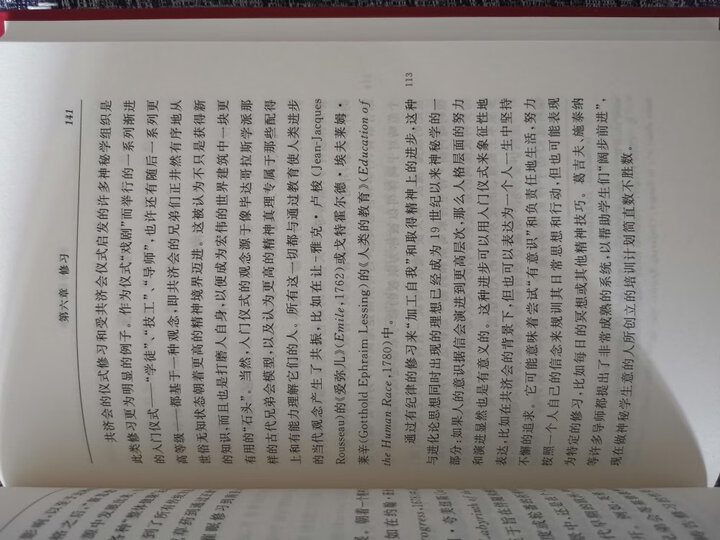 第六章 修习 141
共济会的仪式修习和受共济会仪式启发的许多神秘学组织是
此类修习更为明显的例子。作为仪式“戏剧”而举行的一系列渐进
的入门仪式——“学徒”、“技工”、“导师”,也许还有随后一系列更
高等级——都基于一种观念,即共济会的兄弟们正井然有序地从
世俗无知状态朝着更高的精神境界迈进。这被认为不只是获得新
的知识,而且也是打磨人自身,以便成为宏伟的世界建筑中一块更
有用的“石头”。当然,入门仪式的观念源于像毕达哥拉斯学派那
样的古代兄弟会模型,以及认为更高的精神真理专属于那些配得
上和有能力理解它们的人。所有这一切都与通过教育使人类进步
的当代观念产生了共振,比如在让-雅克·卢梭(Jean-Jacques
Rousseau)的《爱弥儿》(Emile,1762)或戈特霍尔德·埃夫莱姆·
莱辛(Gotthold Ephraim Lessing)的《人类的教育》(Education of
the Human Race,1780)中。
113
通过有纪律的修习来“加工自我”和取得精神上的进步,这种
与进化论思想同时出现的理想已经成为 19 世纪以来神秘学的一
部分:如果人的意识据信会演进到更高层次,那么人格层面的努力
和演进显然也是有意义的。这种进步可以用入门仪式来象征性地
表达,比如在共济会的背景下,但也可以表达为一个人一生中坚持
不懈的追求。它可能意味着尝试“有意识”和负责任地生活,努力
按照一个人自己的信念来规训其日常思想和行动,但也可能表现
为特定的修习,比如每日的冥想或其他精神技巧。葛吉夫、施泰纳
等许多导师都提出了非常成熟的系统,以帮助学生们“阔步前进”,
现在做神秘学生意的人所创立的培训计划简直数不胜数。